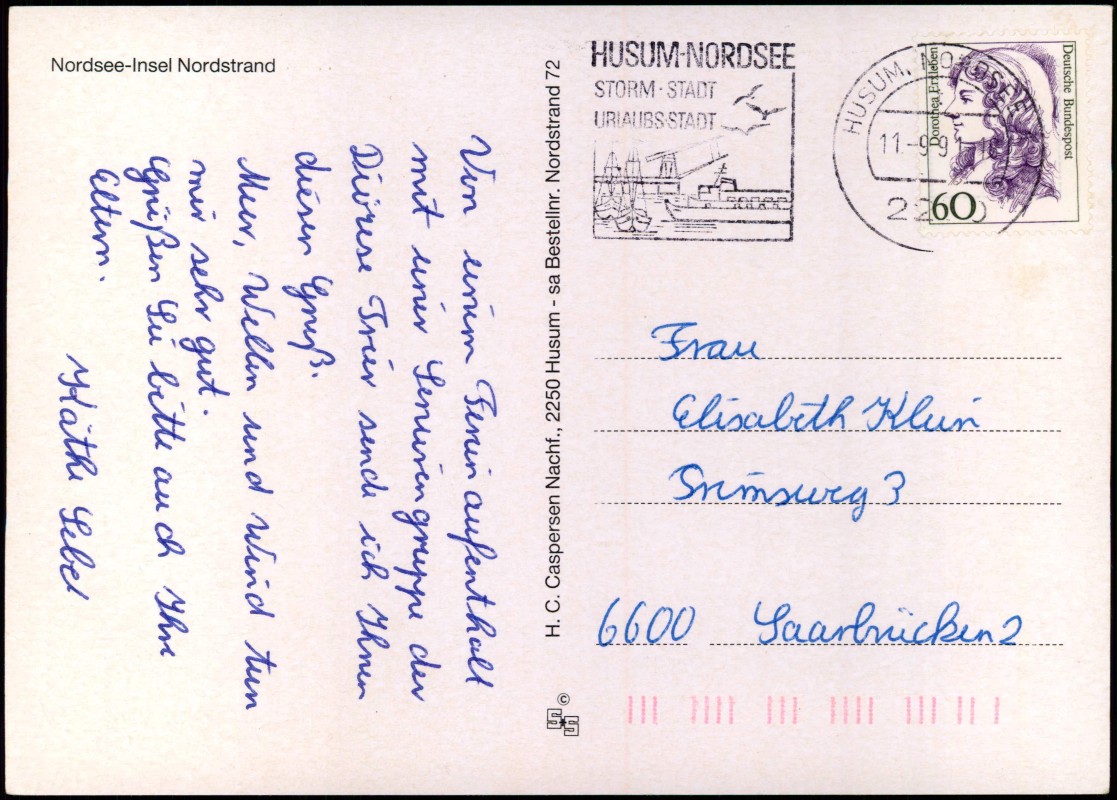 Nordsee-Insel Nordstrand
Von einem Ferienaufenthalt
mit einer Seniorengruppe der
Diözese Trier sende ich Ihnen
diesen Gruß.
Meer, Wellen und Wind tun
mir sehr gut.
Grüßen Sie bitte auch Ihre
Eltern.
Käthe Sebel
H. C. Caspersen Nachf., 2250 Husum - sa Bestellnr. Nordstrand 72
HUSUM-NORDSEE
STORM·STADT
URLAUBS·STADT
HUSUM, NORDSEE
11.-9.9
Dorothea Erxleben
Deutsche Bundespost
60
Frau
Elisabeth Klein
3
6600 Saarbrücken 2
©